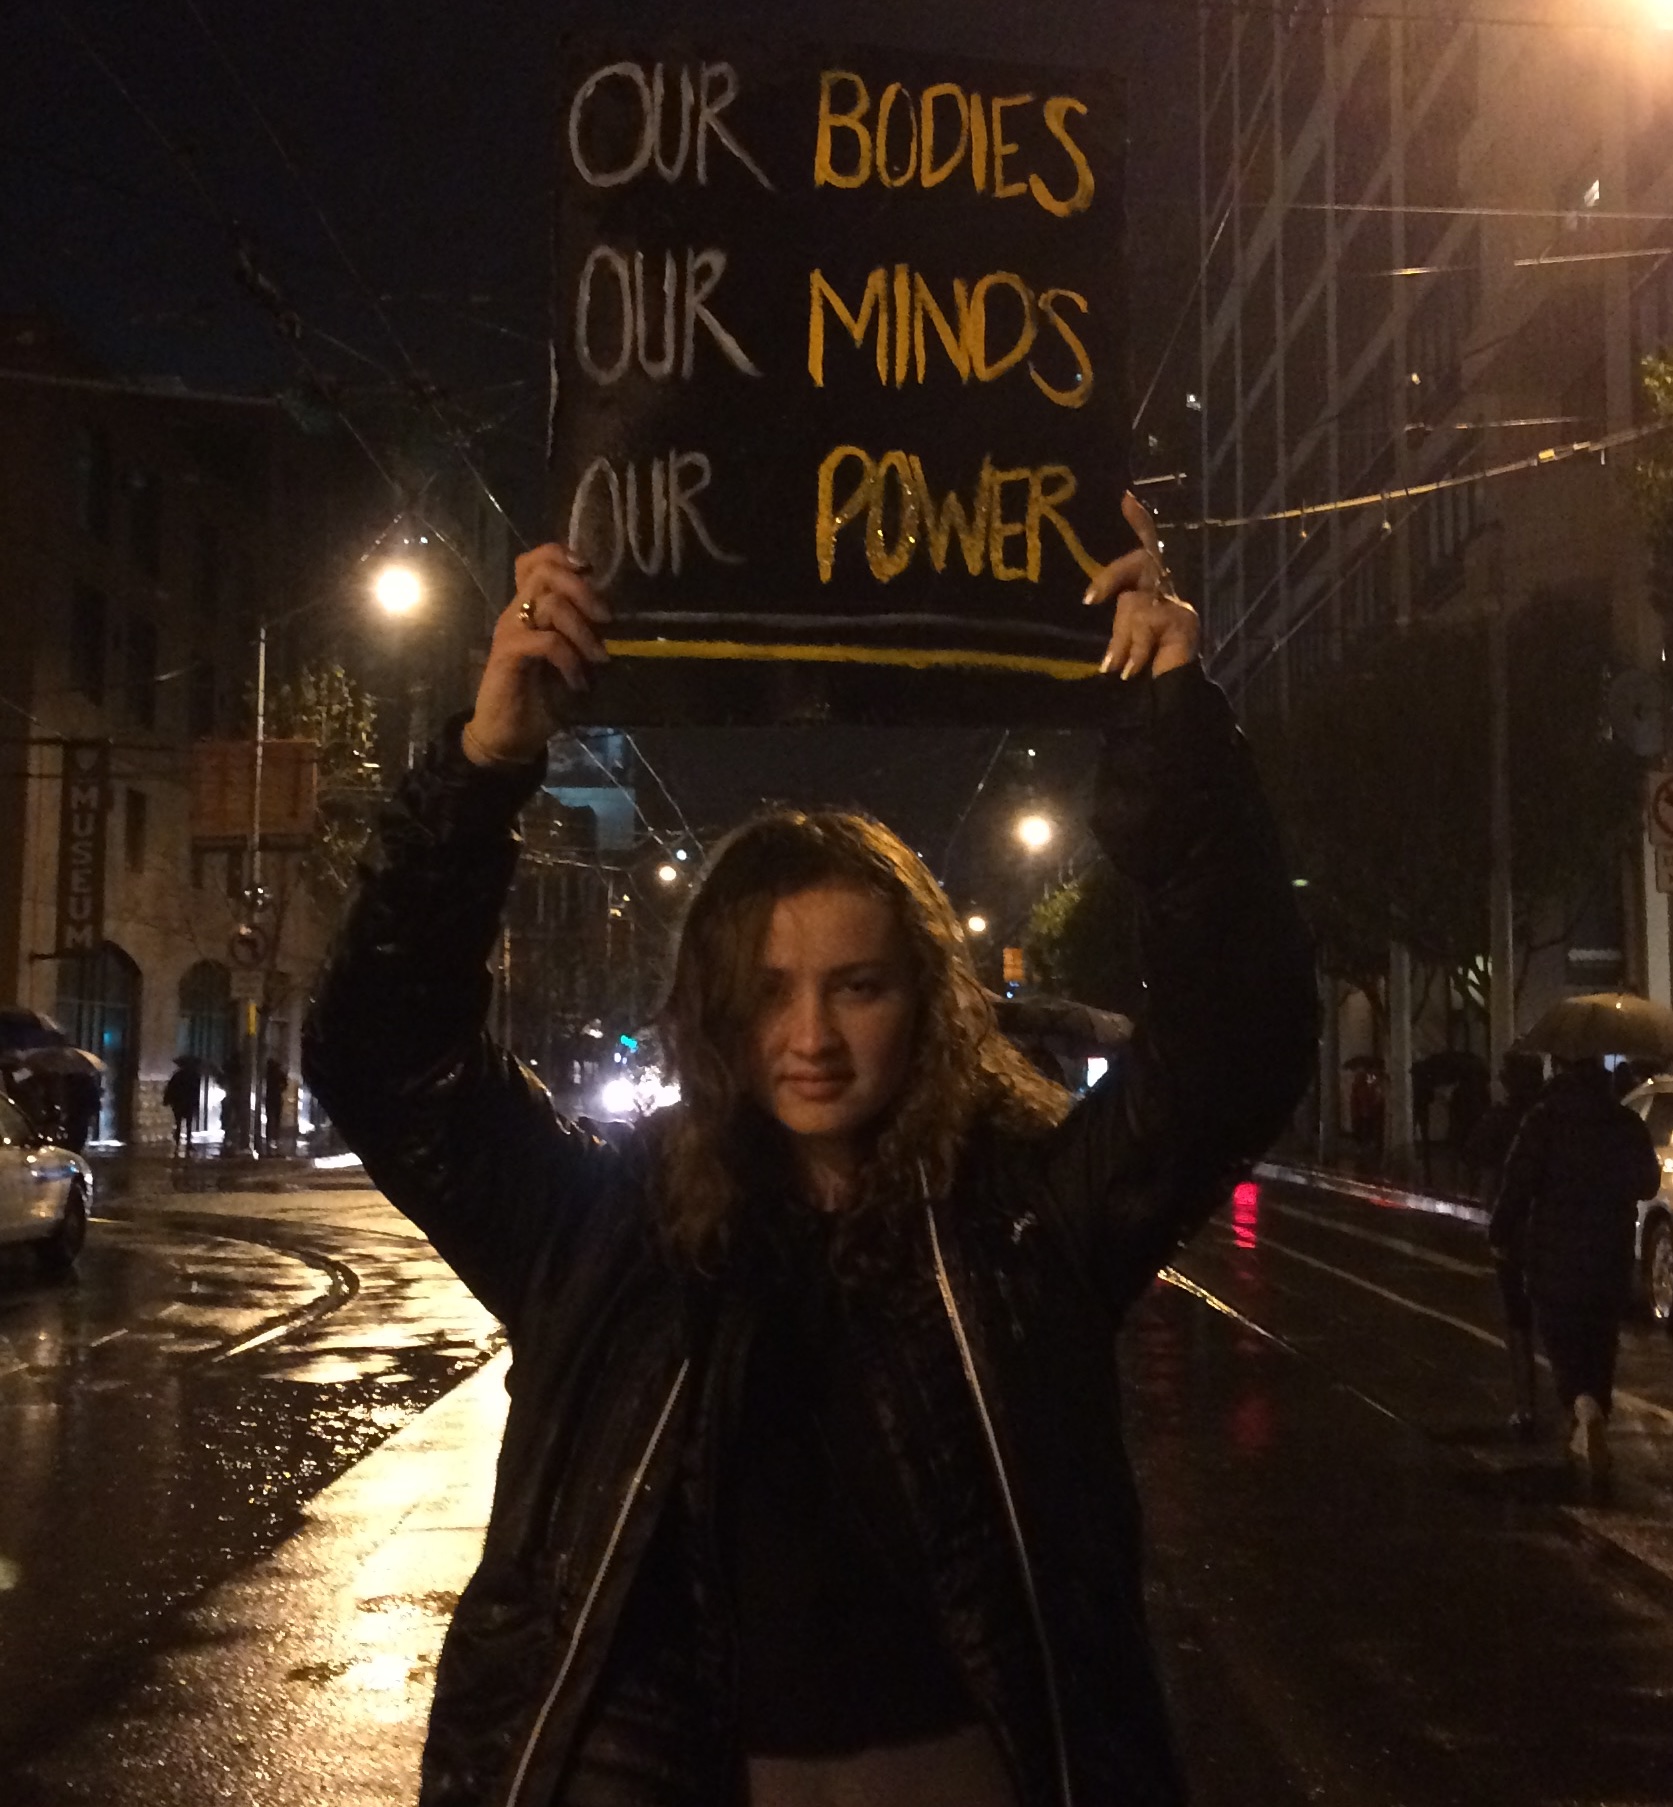 OUR BODIES
OUR MINDS
OUR POWER
MUSEUM